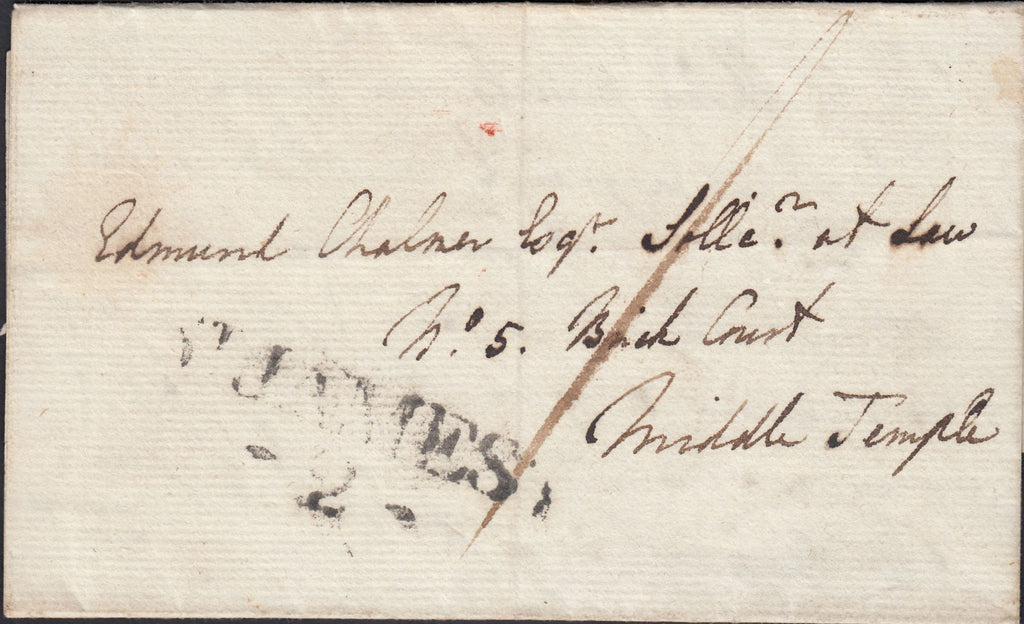 Edmund Chalmer Esqr. Sollcr. at Law
No. 5. Brick Court
Middle Temple
JAMES
2